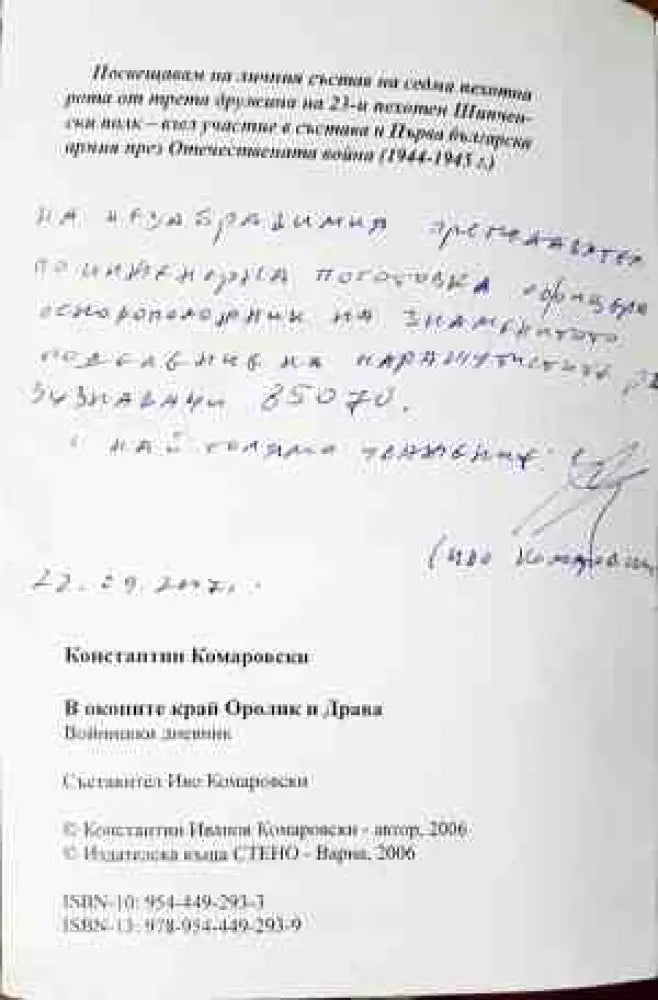 Посвещавам на личния състав на седма пехотна
рота от трета дружина на 23-и пехотен Шипчен-
ски полк – взел участие в състава и Първа българска
армия през Отечествената война (1944-1945 г.)
на незабравимия преподавател
по инженерна подготовка офицера
основоположник на знаменитото
поделение на парашутистите
85070.
С най голямо уважение:
(Иво Комаровски
2007г.
Константин Комаровски
В окопите край Оролик и Драва
Войнишки дневник
Съставител Иво Комаровски
© Константин Иванов Комаровски - автор, 2006
© Издателска къща СТЕНО - Варна, 2006
ISBN-10: 954-449-293-3
ISBN-13: 978-954-449-293-9